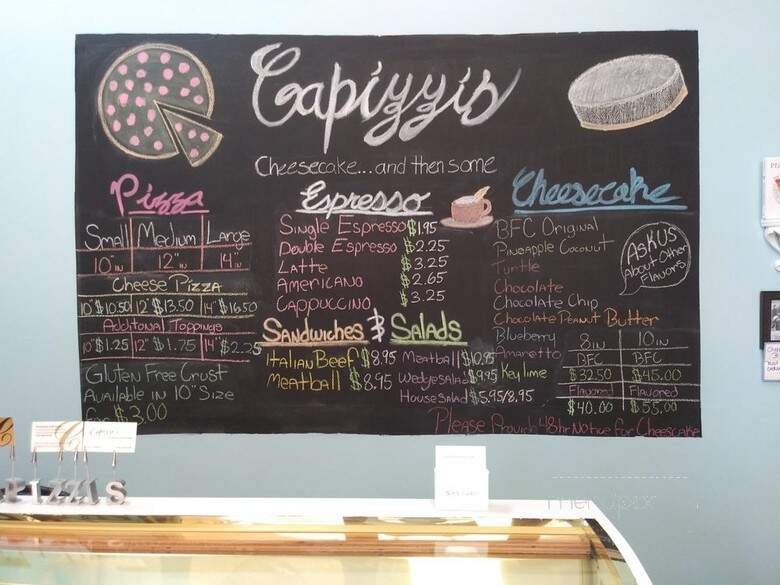 Capizzis
Cheesecake...and then some
Pizza
Small Medium Large
10"in 12"in 14"in
Cheese Pizza
10" $10.50 12" $13.50 14" $16.50
Additonal Toppings
10" $1.25 12" $1.75 14" $2.25
Gluten Free Crust
Available in 10" Size
for $3.00
Espresso
Single Espresso $1.95
Double Espresso $2.25
Latte $3.25
Americano $2.65
Cappuccino $3.25
Sandwiches & Salads
Italian Beef $8.95
Meatball $8.95
Meatball $10.95
Wedge Salad $9.95
House Salad $5.95/8.95
Cheesecake
BFC Original
Pineapple Coconut
Turtle
Chocolate
Chocolate Chip
Chocolate Peanut Butter
Blueberry
Amaretto
Key lime
Ask Us
About Other
Flavors
8in 10in
BFC BFC
$32.50 $45.00
Flavored Flavored
$40.00 $55.00
Please Provide 48hr Notice for Cheescake
PIZZIS
menupix